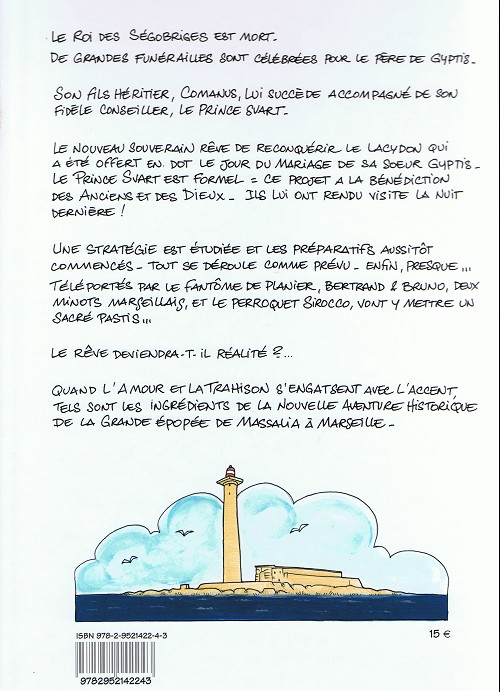 LE ROI DES SÉGOBRIGES EST MORT_
DE GRANDES FUNÉRAILLES SONT CÉLÉBRÉES POUR LE PÈRE DE GYPTIS_
SON FILS HÉRITIER, COMANUS, LUI SUCCÈDE ACCOMPAGNÉ DE SON
FIDÈLE CONSEILLER, LE PRINCE SVART_
LE NOUVEAU SOUVERAIN RÊVE DE RECONQUÉRIR LE LACYDON QUI
A ÉTÉ OFFERT EN DOT LE JOUR DU MARIAGE DE SA SOEUR GYPTIS_
LE PRINCE SVART EST FORMEL = CE PROJET A LA BÉNÉDICTION
DES ANCIENS ET DES DIEUX_ ILS LUI ONT RENDU VISITE LA NUIT
DERNIÈRE !
UNE STRATÉGIE EST ÉTUDIÉE ET LES PRÉPARATIFS AUSSITÔT
COMMENCÉS_ TOUT SE DÉROULE COMME PRÉVU_ ENFIN, PRESQUE...
TÉLÉPORTÉS PAR LE FANTÔME DE PLANIER, BERTRAND & BRUNO, DEUX
MINOTS MARSEILLAIS, ET LE PERROQUET SIROCCO, VONT Y METTRE UN
SACRÉ PASTIS...
LE RÊVE DEVIENDRA-T-IL RÉALITÉ ?...
QUAND L'AMOUR ET LA TRAHISON S'ENGATSENT AVEC L'ACCENT,
TELS SONT LES INGRÉDIENTS DE LA NOUVELLE AVENTURE HISTORIQUE
DE LA GRANDE ÉPOPÉE DE MASSALIA À MARSEILLE_
ISBN 978-2-9521422-4-3
15 €
9782952142243